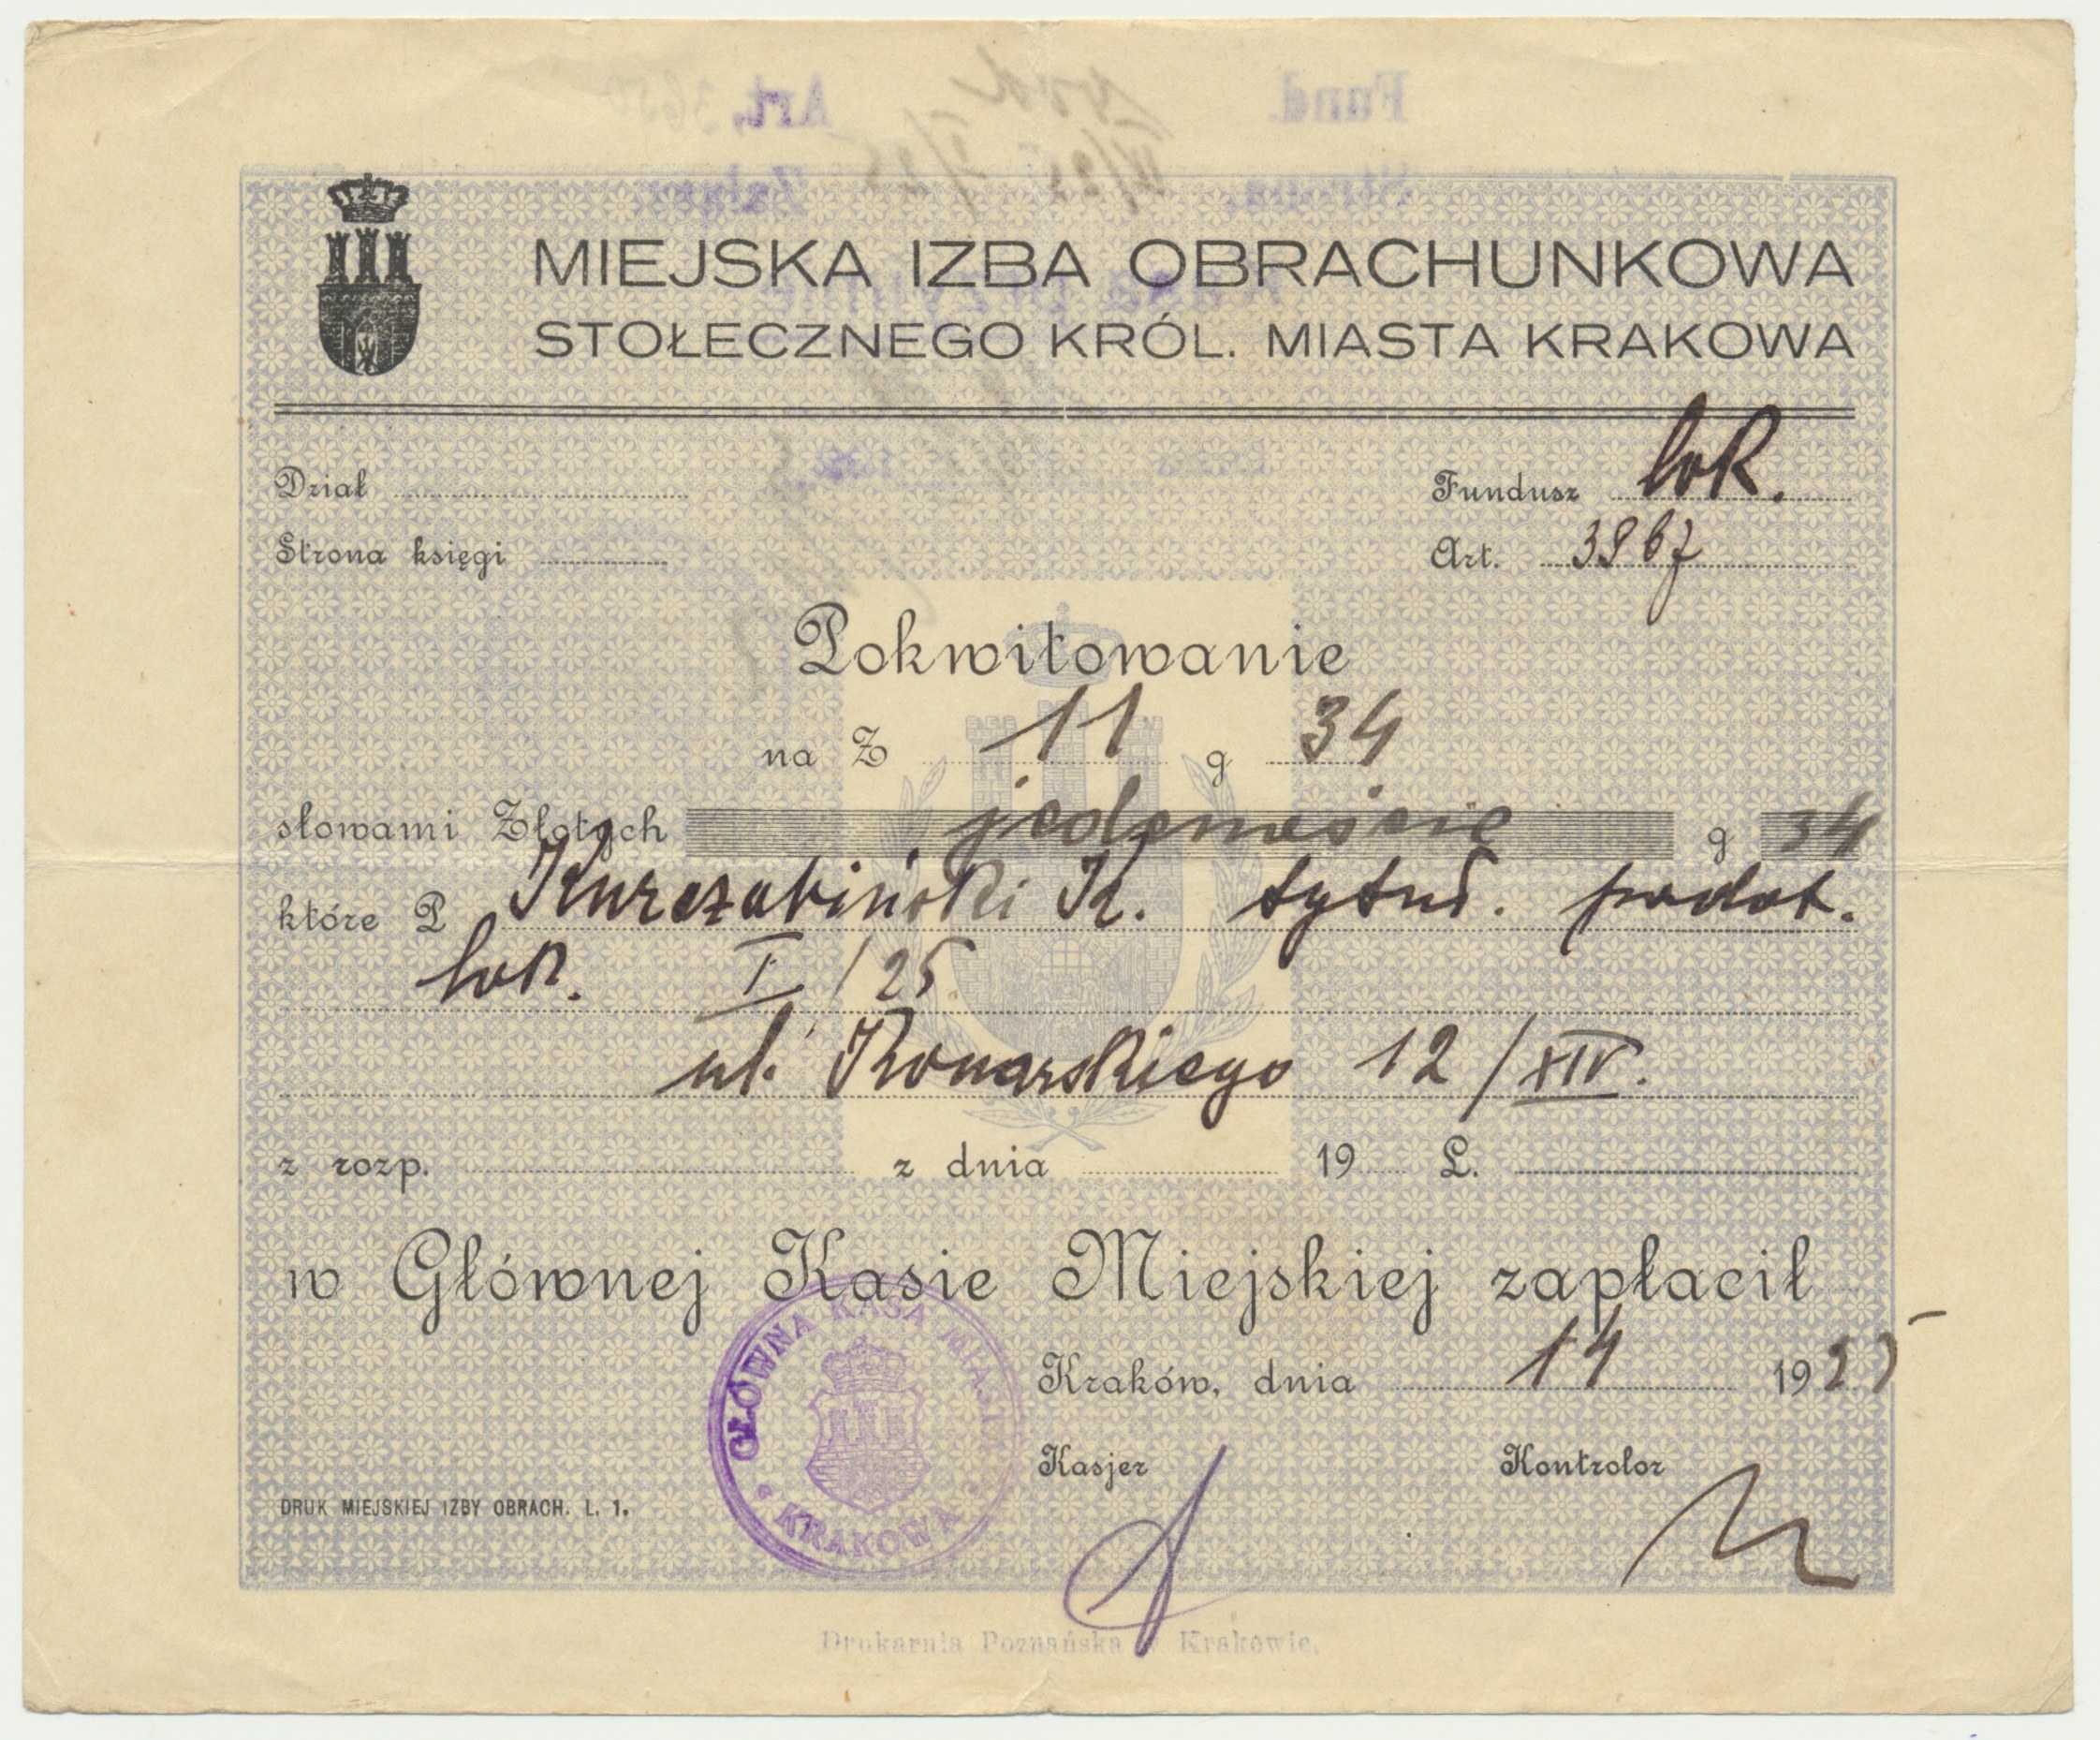 MIEJSKA IZBA OBRACHUNKOWA
STOŁECZNEGO KRÓL. MIASTA KRAKOWA
Dział Fundusz lok.
Strona księgi Art. 3967
Pokwitowanie
na Z 11 g 34
słowami Złotych jedenaście g 34
które P Kurczabiński K. tytuł. podat.
lok. I/25
ul. Konarskiego 12/XIV.
z rozp. z dnia 19 L.
w Głównej Kasie Miejskiej zapłacił
Kraków, dnia 14 1925
Kasjer Kontrolor
GŁÓWNA KASA MIASTA KRAKOWA
DRUK MIEJSKIEJ IZBY OBRACH. L. 1.
Drukarnia Poznańska w Krakowie.